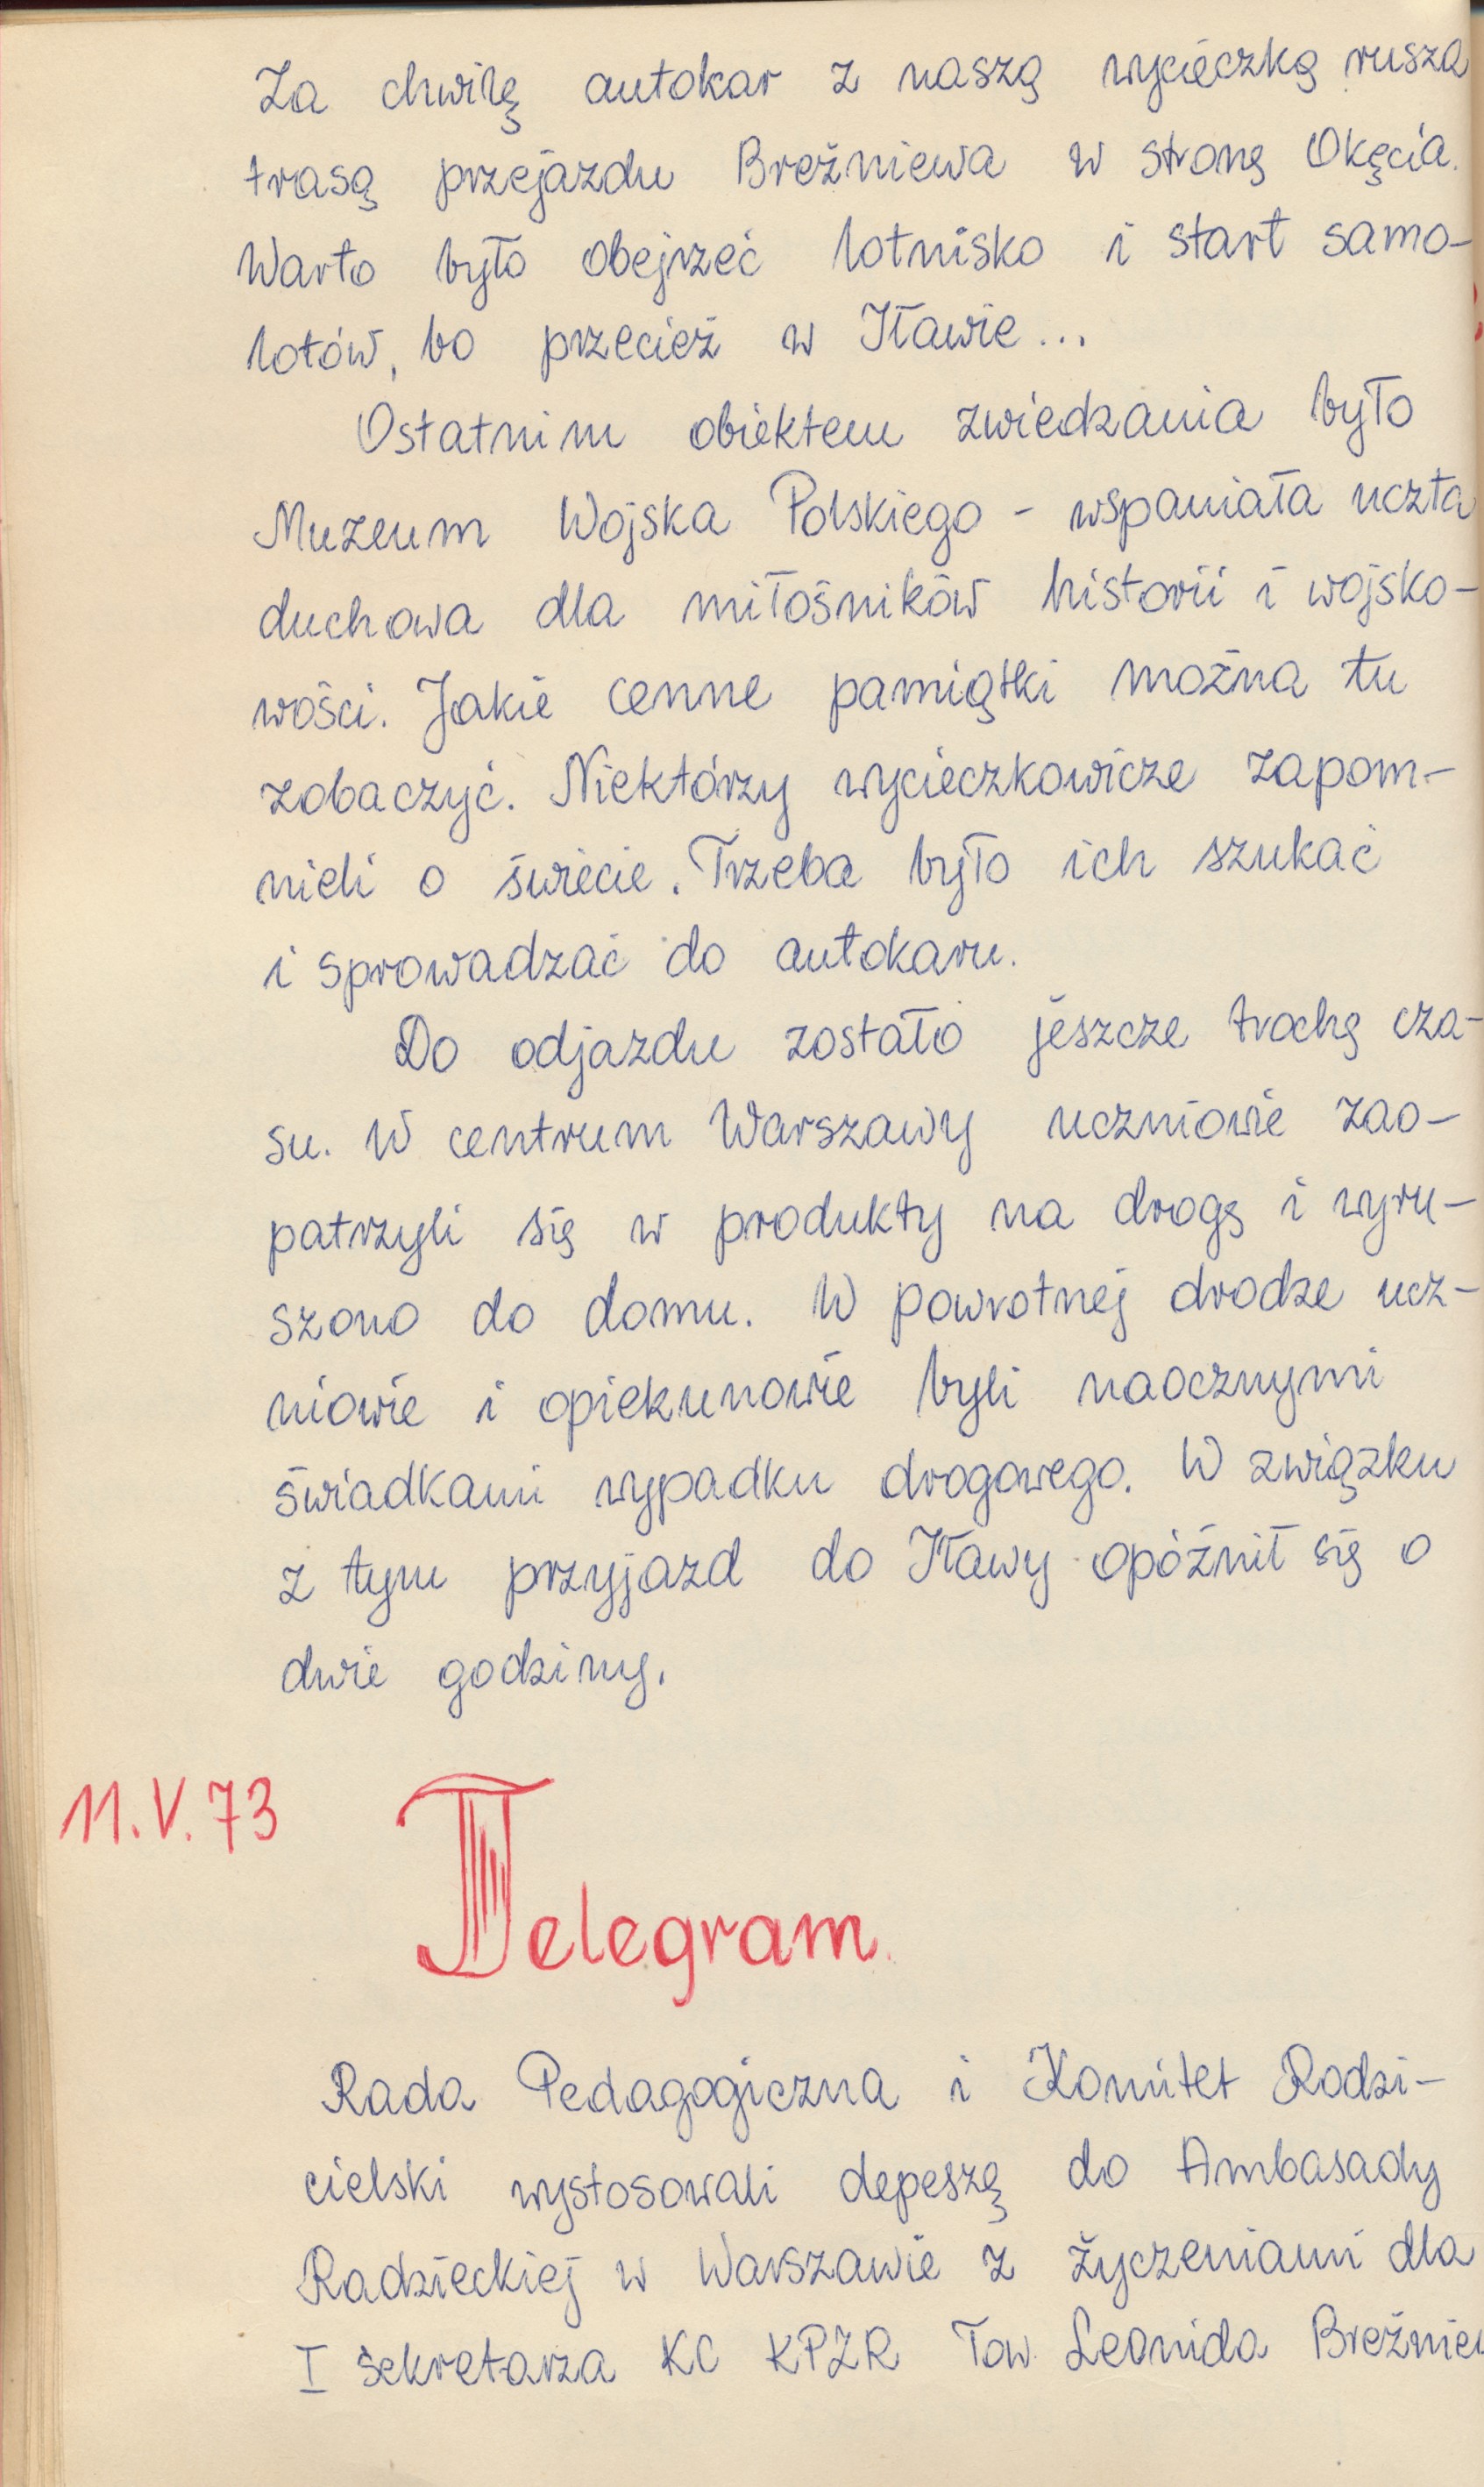 Za chwilę autokar z naszą wycieczką rusza
trasą przejazdu Breżniewa w stronę Okęcia.
Warto było obejrzeć lotnisko i start samo-
lotów, bo przecież w Iławie...
Ostatnim obiektem zwiedzania było
Muzeum Wojska Polskiego - wspaniała uczta
duchowa dla miłośników historii i wojsko-
wości. Jakie cenne pamiątki można tu
zobaczyć. Niektórzy wycieczkowicze zapom-
nieli o świecie. Trzeba było ich szukać
i sprowadzać do autokaru.
Do odjazdu zostało jeszcze trochę cza-
su. W centrum Warszawy uczniowie zao-
patrzyli się w produkty na drogę i wyru-
szono do domu. W powrotnej drodze ucz-
niowie i opiekunowie byli naocznymi
świadkami wypadku drogowego. W związku
z tym przyjazd do Iławy opóźnił się o
dwie godziny.
11.V.73 Telegram.
Rada Pedagogiczna i Komitet Rodzi-
cielski wystosowali depeszę do Ambasady
Radzieckiej w Warszawie z życzeniami dla
I sekretarza KC KPZR Tow. Leonida Breżniew